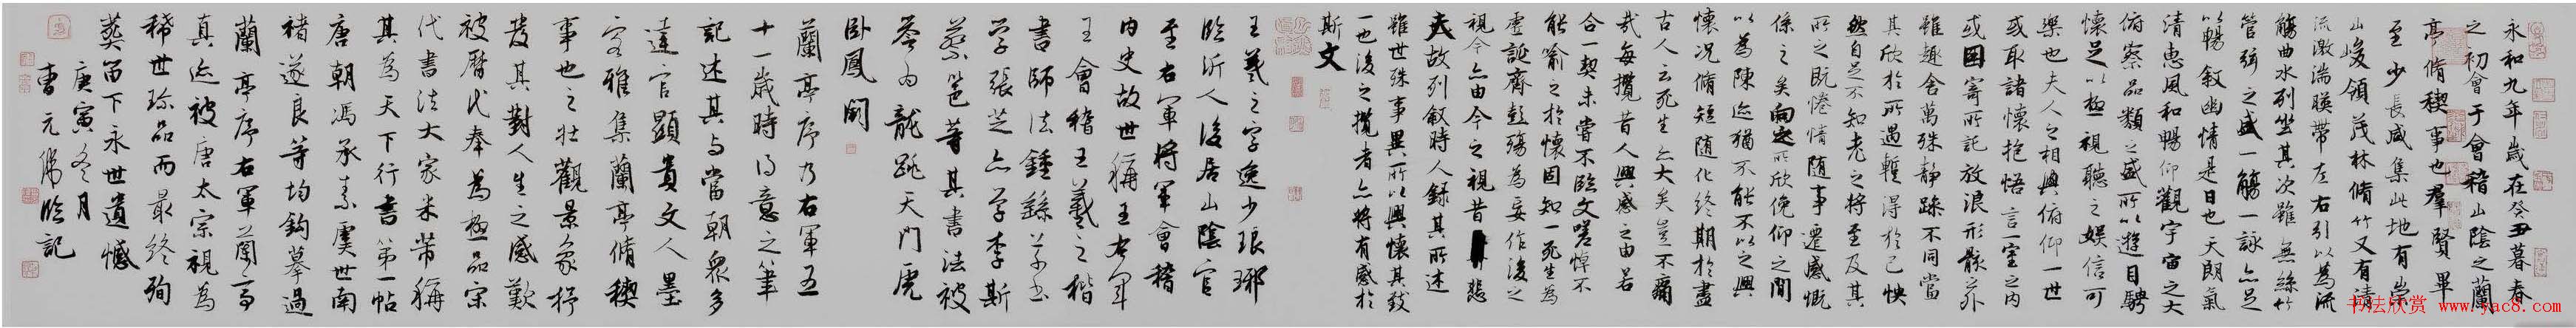 永和九年歲在癸丑暮春
之初會于會稽山陰之蘭
亭脩稧事也羣賢畢
至少長咸集此地有崇
山峻領茂林脩竹又有清
流激湍暎帶左右引以為流
觴曲水列坐其次雖無絲竹
管弦之盛一觴一詠亦足
以暢敘幽情是日也天朗氣
清惠風和暢仰觀宇宙之大
俯察品類之盛所以遊目騁
懷足以極視聽之娛信可
樂也夫人之相與俯仰一世
或取諸懷抱悟言一室之内
或因寄所託放浪形骸之外
雖趣舍萬殊靜躁不同當
其欣於所遇暫得於己怏
然自足不知老之將至及其
所之既惓情隨事遷感慨
係之矣向之所欣俛仰之間
以為陳迹猶不能不以之興
懷况脩短隨化終期於盡
古人云死生亦大矣豈不痛
哉每攬昔人興感之由若
合一契未嘗不臨文嗟悼不
能喻之於懷固知一死生為
虛誕齊彭殤為妄作後之
視今亦由今之視昔悲
夫故列敘時人錄其所述
雖世殊事異所以興懷其致
一也後之攬者亦將有感於
斯文
王羲之字逸少琅琊
臨沂人後居山陰官
至右軍將軍會稽
内史故世稱王右軍
王會稽王羲之楷
書師法鍾繇草書
學張芝亦學李斯
蔡邕等其書法被
譽為龍跳天門虎
卧鳳闕
蘭亭序乃右軍五
十一歲時得意之筆
記述其与當朝眾多
達官顯貴文人墨
客雅集蘭亭脩稧
事也之壯觀景象抒
發其對人生之感歎
被歷代奉為極品宋
代書法大家米芾稱
其為天下行書第一帖
唐朝馮承素虞世南
褚遂良等均鉤摹過
蘭亭序右軍蘭亭
真迹被唐太宗視為
稀世珍品而最終殉
葬留下永世遺憾
庚寅冬月
曹元偉臨記
书法欣赏 www.yac8.com